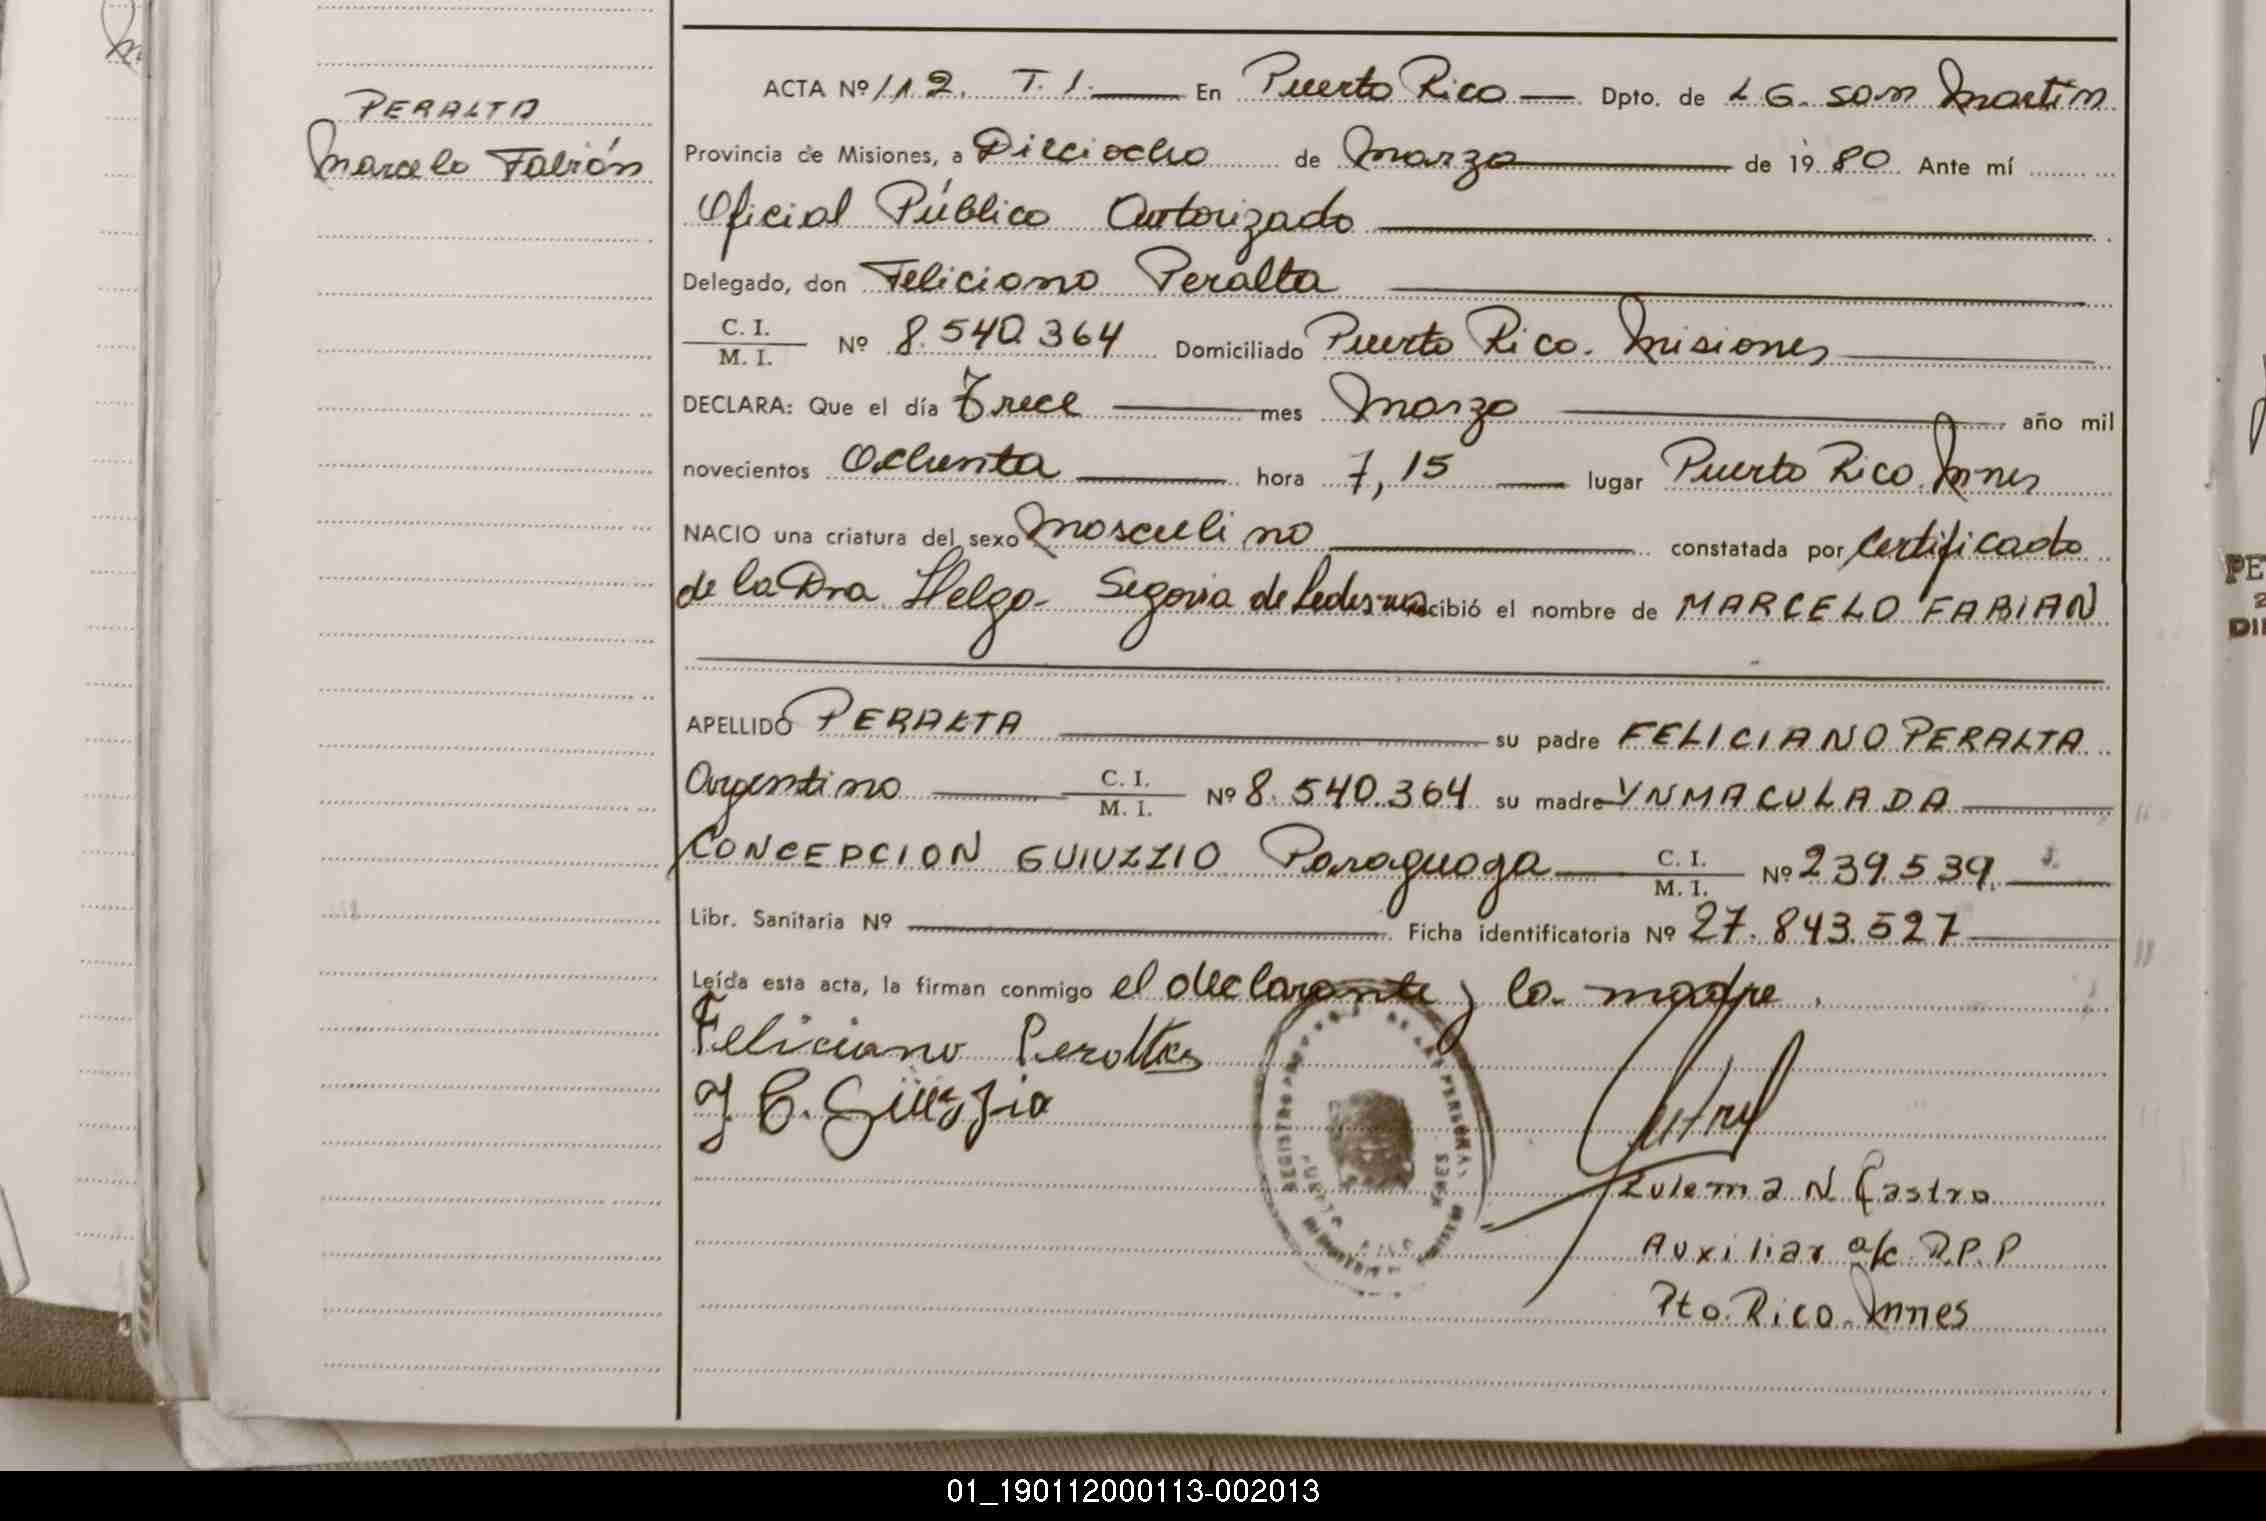 PERALTA
Marcelo Fabián
ACTA Nº 112. T. I. En Puerto Rico Dpto. de L G. San Martín
Provincia de Misiones, a Dieciocho de Marzo de 1980. Ante mí
Oficial Público Autorizado
Delegado, don Feliciano Peralta
C. I.
M. I. Nº 8.540.364 Domiciliado Puerto Rico. Misiones
DECLARA: Que el día Trece mes Marzo año mil
novecientos Ochenta hora 7,15 lugar Puerto Rico. Mnes
NACIO una criatura del sexo Masculino constatada por Certificado
de la Dra Helga Segovia de Ledesma recibió el nombre de MARCELO FABIAN
APELLIDO PERALTA su padre FELICIANO PERALTA
Argentino C. I.
M. I. Nº 8.540.364 su madre YNMACULADA
CONCEPCION GUIUZZIO Paraguaya C. I.
M. I. Nº 239.539.
Libr. Sanitaria Nº Ficha identificatoria Nº 27.843.527
Leída esta acta, la firman conmigo el declarante y la madre.
Feliciano Peralta
C.
Zulema N Castro
Auxiliar a/c D.P.P
Pto. Rico. Mnes
PE
DI
01_190112000113-002013